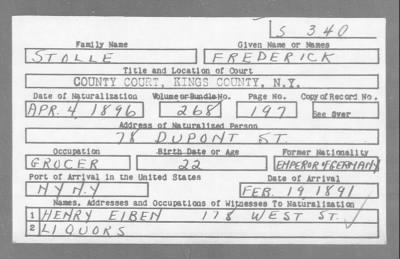 S 340
Family Name Given Name or Names
STOLLE FREDERICK
Title and Location of Court
COUNTY COURT, KINGS COUNTY, N.Y.
Date of Naturalization Volume or Bundle No. Page No. Copy of Record No.
APR. 4, 1896 268 197 See Over
Address of Naturalized Person
78 DUPONT ST.
Occupation Birth Date or Age Former Nationality
GROCER 22 EMPEROR OF GERMANY
Port of Arrival in the United States Date of Arrival
NY N.Y FEB. 19, 1891
Names, Addresses and Occupations of Witnesses To Naturalization
1 HENRY EIBEN 178 WEST ST.
2 LIQUORS